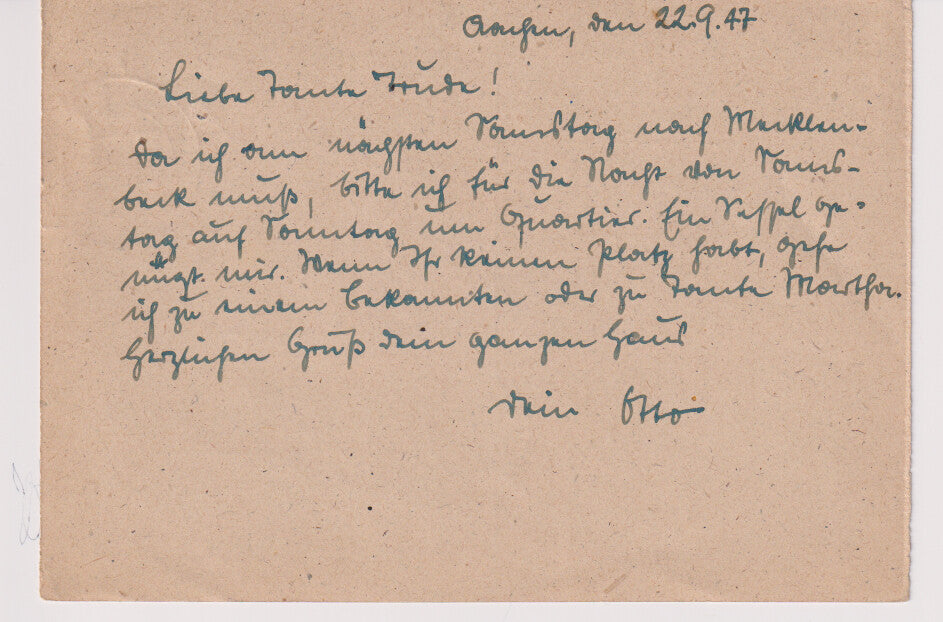 Aachen, den 22.9.47
Liebe Tante Trude!
Da ich am nächsten Samstag nach Mecklen-
beck muß, bitte ich für die Nacht von Sams-
tag auf Sonntag um Quartier. Ein Sessel ge-
nügt mir. Wenn Ihr keinen Platz habt, gehe
ich zu einem Bekannten oder zu Tante Martha.
Herzlichen Gruß dein ganzen Haus
Dein Otto